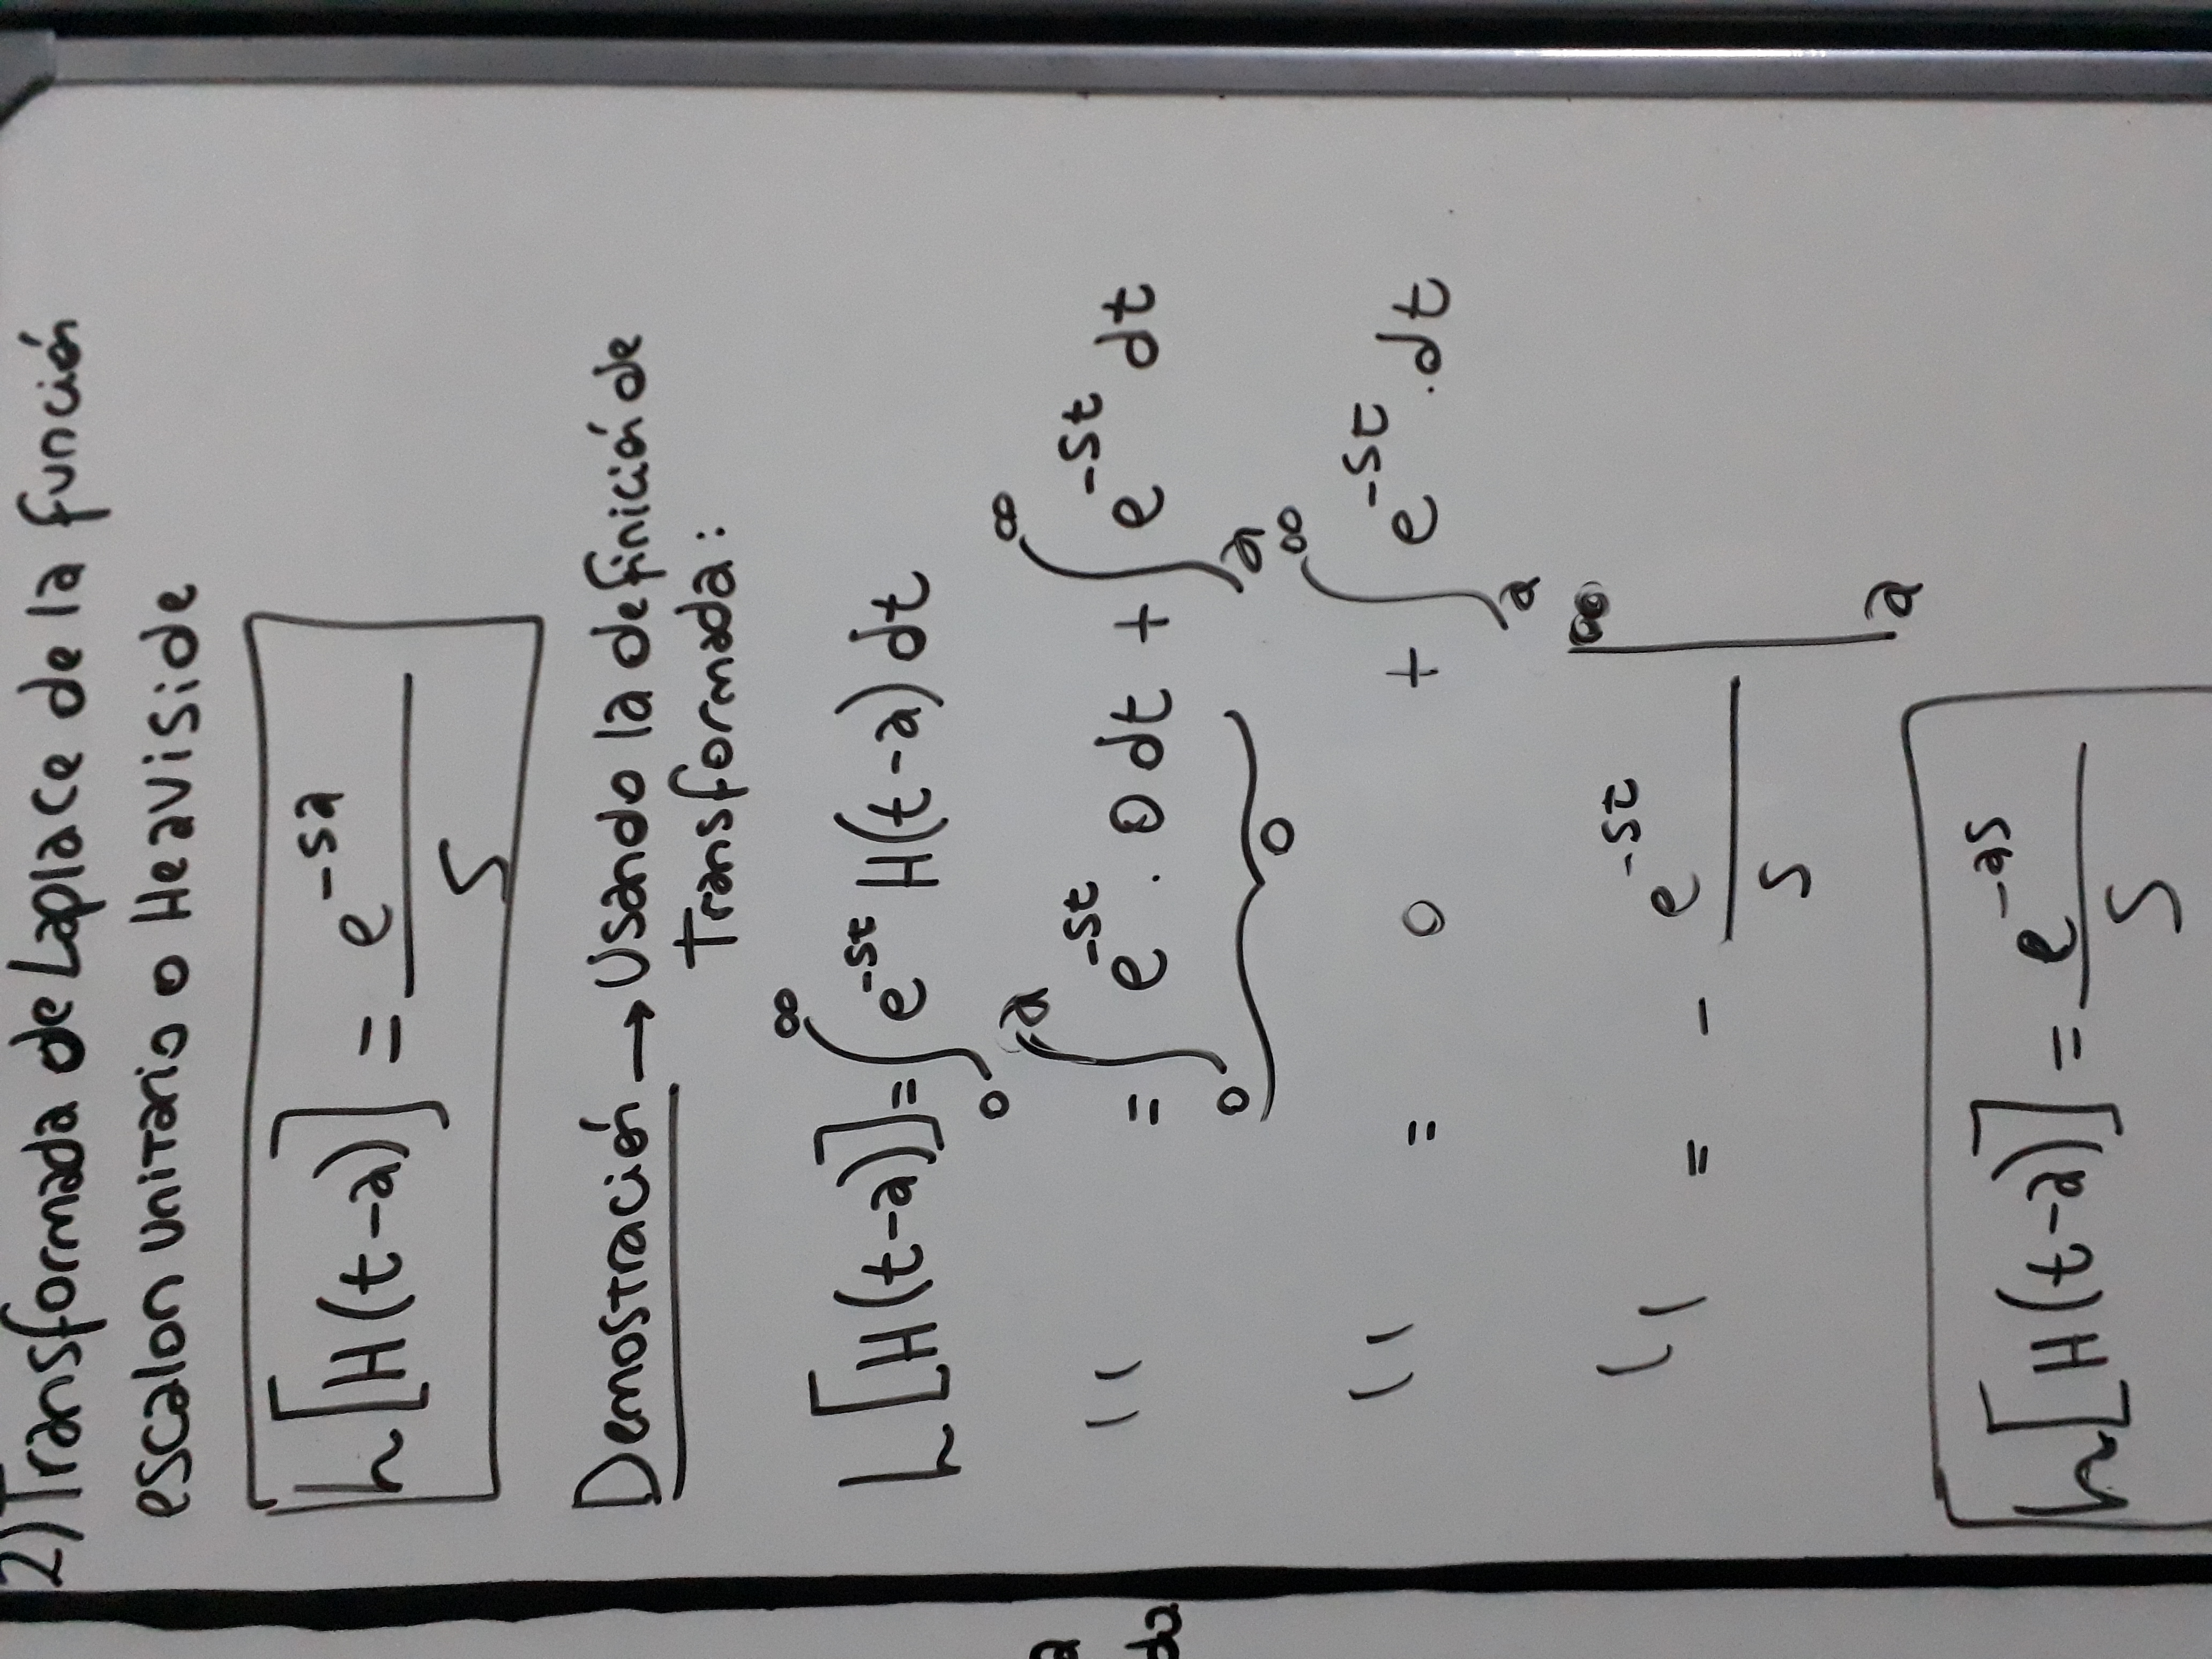 2) Transformada de Laplace de la función
escalon unitario o Heaviside
L[H(t-a)] = e^{-sa} / s
Demostración → Usando la definición de
Transformada:
L[H(t-a)] = ∫_0^∞ e^{-st} H(t-a) dt
" = ∫_0^a e^{-st} . 0 dt + ∫_a^∞ e^{-st} dt
0
" = 0 + ∫_a^∞ e^{-st} . dt
" = - e^{-st} / s |_a^∞
L[H(t-a)] = e^{-as} / s